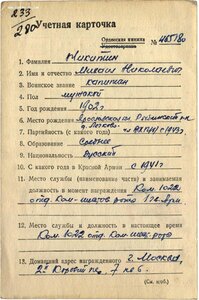 233
280
Учетная карточка
№ 465780
1. Фамилия Никитин
2. Имя и отчество Михаил Николаевич
3. Воинское звание капитан
4. Пол мужской
5. Год рождения 1902 г.
6. Место рождения Ярославская
7. Партийность (с какого года) чл. ВКП(б) с 1943 г.
8. Образование Среднее
9. Национальность Русский
10. С какого года в Красной Армии с 1941 г.
11. Место службы (наименование части) и занимаемая
должность в момент награждения Ком. 1022
отд. Ком.
12. Место службы и должность в настоящее время
Ком. 1022 отд. Ком.
13. Домашний адрес награжденного г. Москва,
(См. на об.)